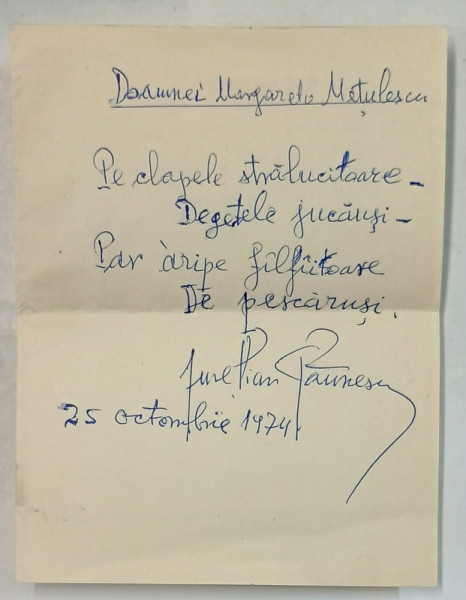 Doamnei Margareta Mețulescu
Pe clapele strălucitoare -
Degetele jucăuși -
Par àripe fîlfîitoare
De pescăruși.
Aurelian Păunescu
25 octombrie 1974